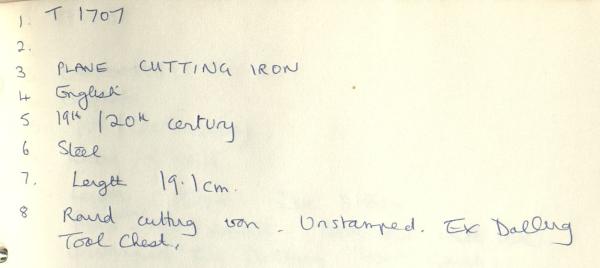 1. T 1707
2.
3 PLANE CUTTING IRON
4 English
5 19th / 20th century
6 Steel
7. Length 19.1cm.
8 Round cutting iron. Unstamped. Ex Dalling
Tool Chest.